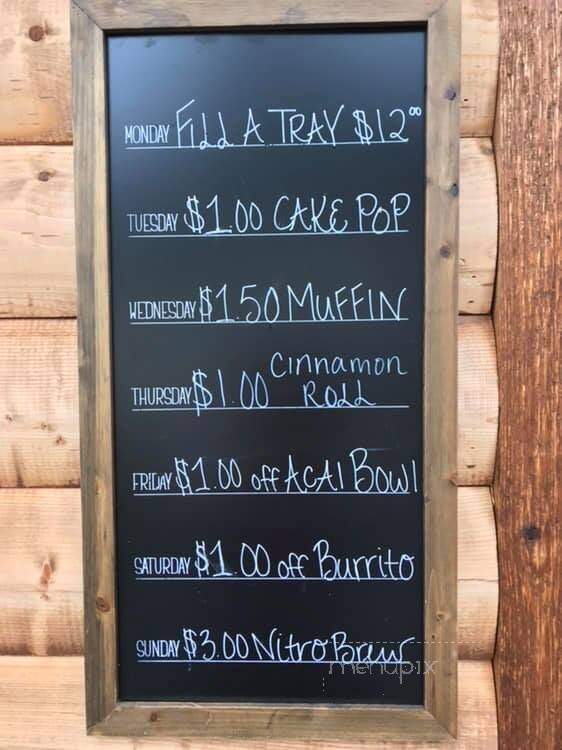 MONDAY FILL A TRAY $12.00
TUESDAY $1.00 CAKE POP
WEDNESDAY $1.50 MUFFIN
THURSDAY $1.00 Cinnamon ROLL
FRIDAY $1.00 off ACAI BOWl
SATURDAY $1.00 off Burrito
SUNDAY $3.00 Nitro Brew
menupix